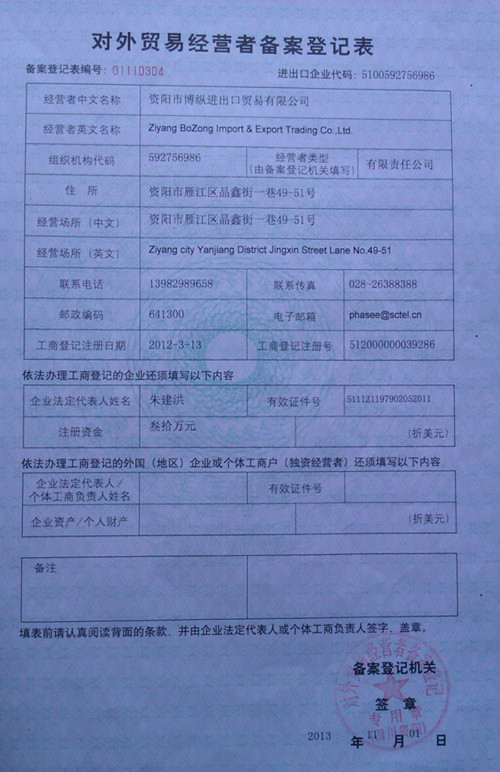 对外贸易经营者备案登记表
备案登记表编号：01110304 进出口企业代码：5100592756986
经营者中文名称 资阳市博纵进出口贸易有限公司
经营者英文名称 Ziyang BoZong Import & Export Trading Co.,Ltd.
组织机构代码 592756986 经营者类型 (由备案登记机关填写) 有限责任公司
住 所 资阳市雁江区晶鑫街一巷49-51号
经营场所（中文） 资阳市雁江区晶鑫街一巷49-51号
经营场所（英文） Ziyang city Yanjiang District Jingxin Street Lane No.49-51
联系电话 13982989658 联系传真 028-26388388
邮政编码 641300 电子邮箱 phasee@sctel.cn
工商登记注册日期 2012-3-13 工商登记注册号 512000000039286
依法办理工商登记的企业还须填写以下内容
企业法定代表人姓名 朱建洪 有效证件号 511121197902052011
注册资金 叁拾万元 (折美元)
依法办理工商登记的外国（地区）企业或个体工商户（独资经营者）还须填写以下内容
企业法定代表人/
个体工商负责人姓名 有效证件号
企业资产/个人财产 (折美元)
备注
填表前请认真阅读背面的条款，并由企业法定代表人或个体工商负责人签字、盖章。
备案登记机关
签 章
对外贸易经营者备案登记
专用章
2013 年 11 月 01 日